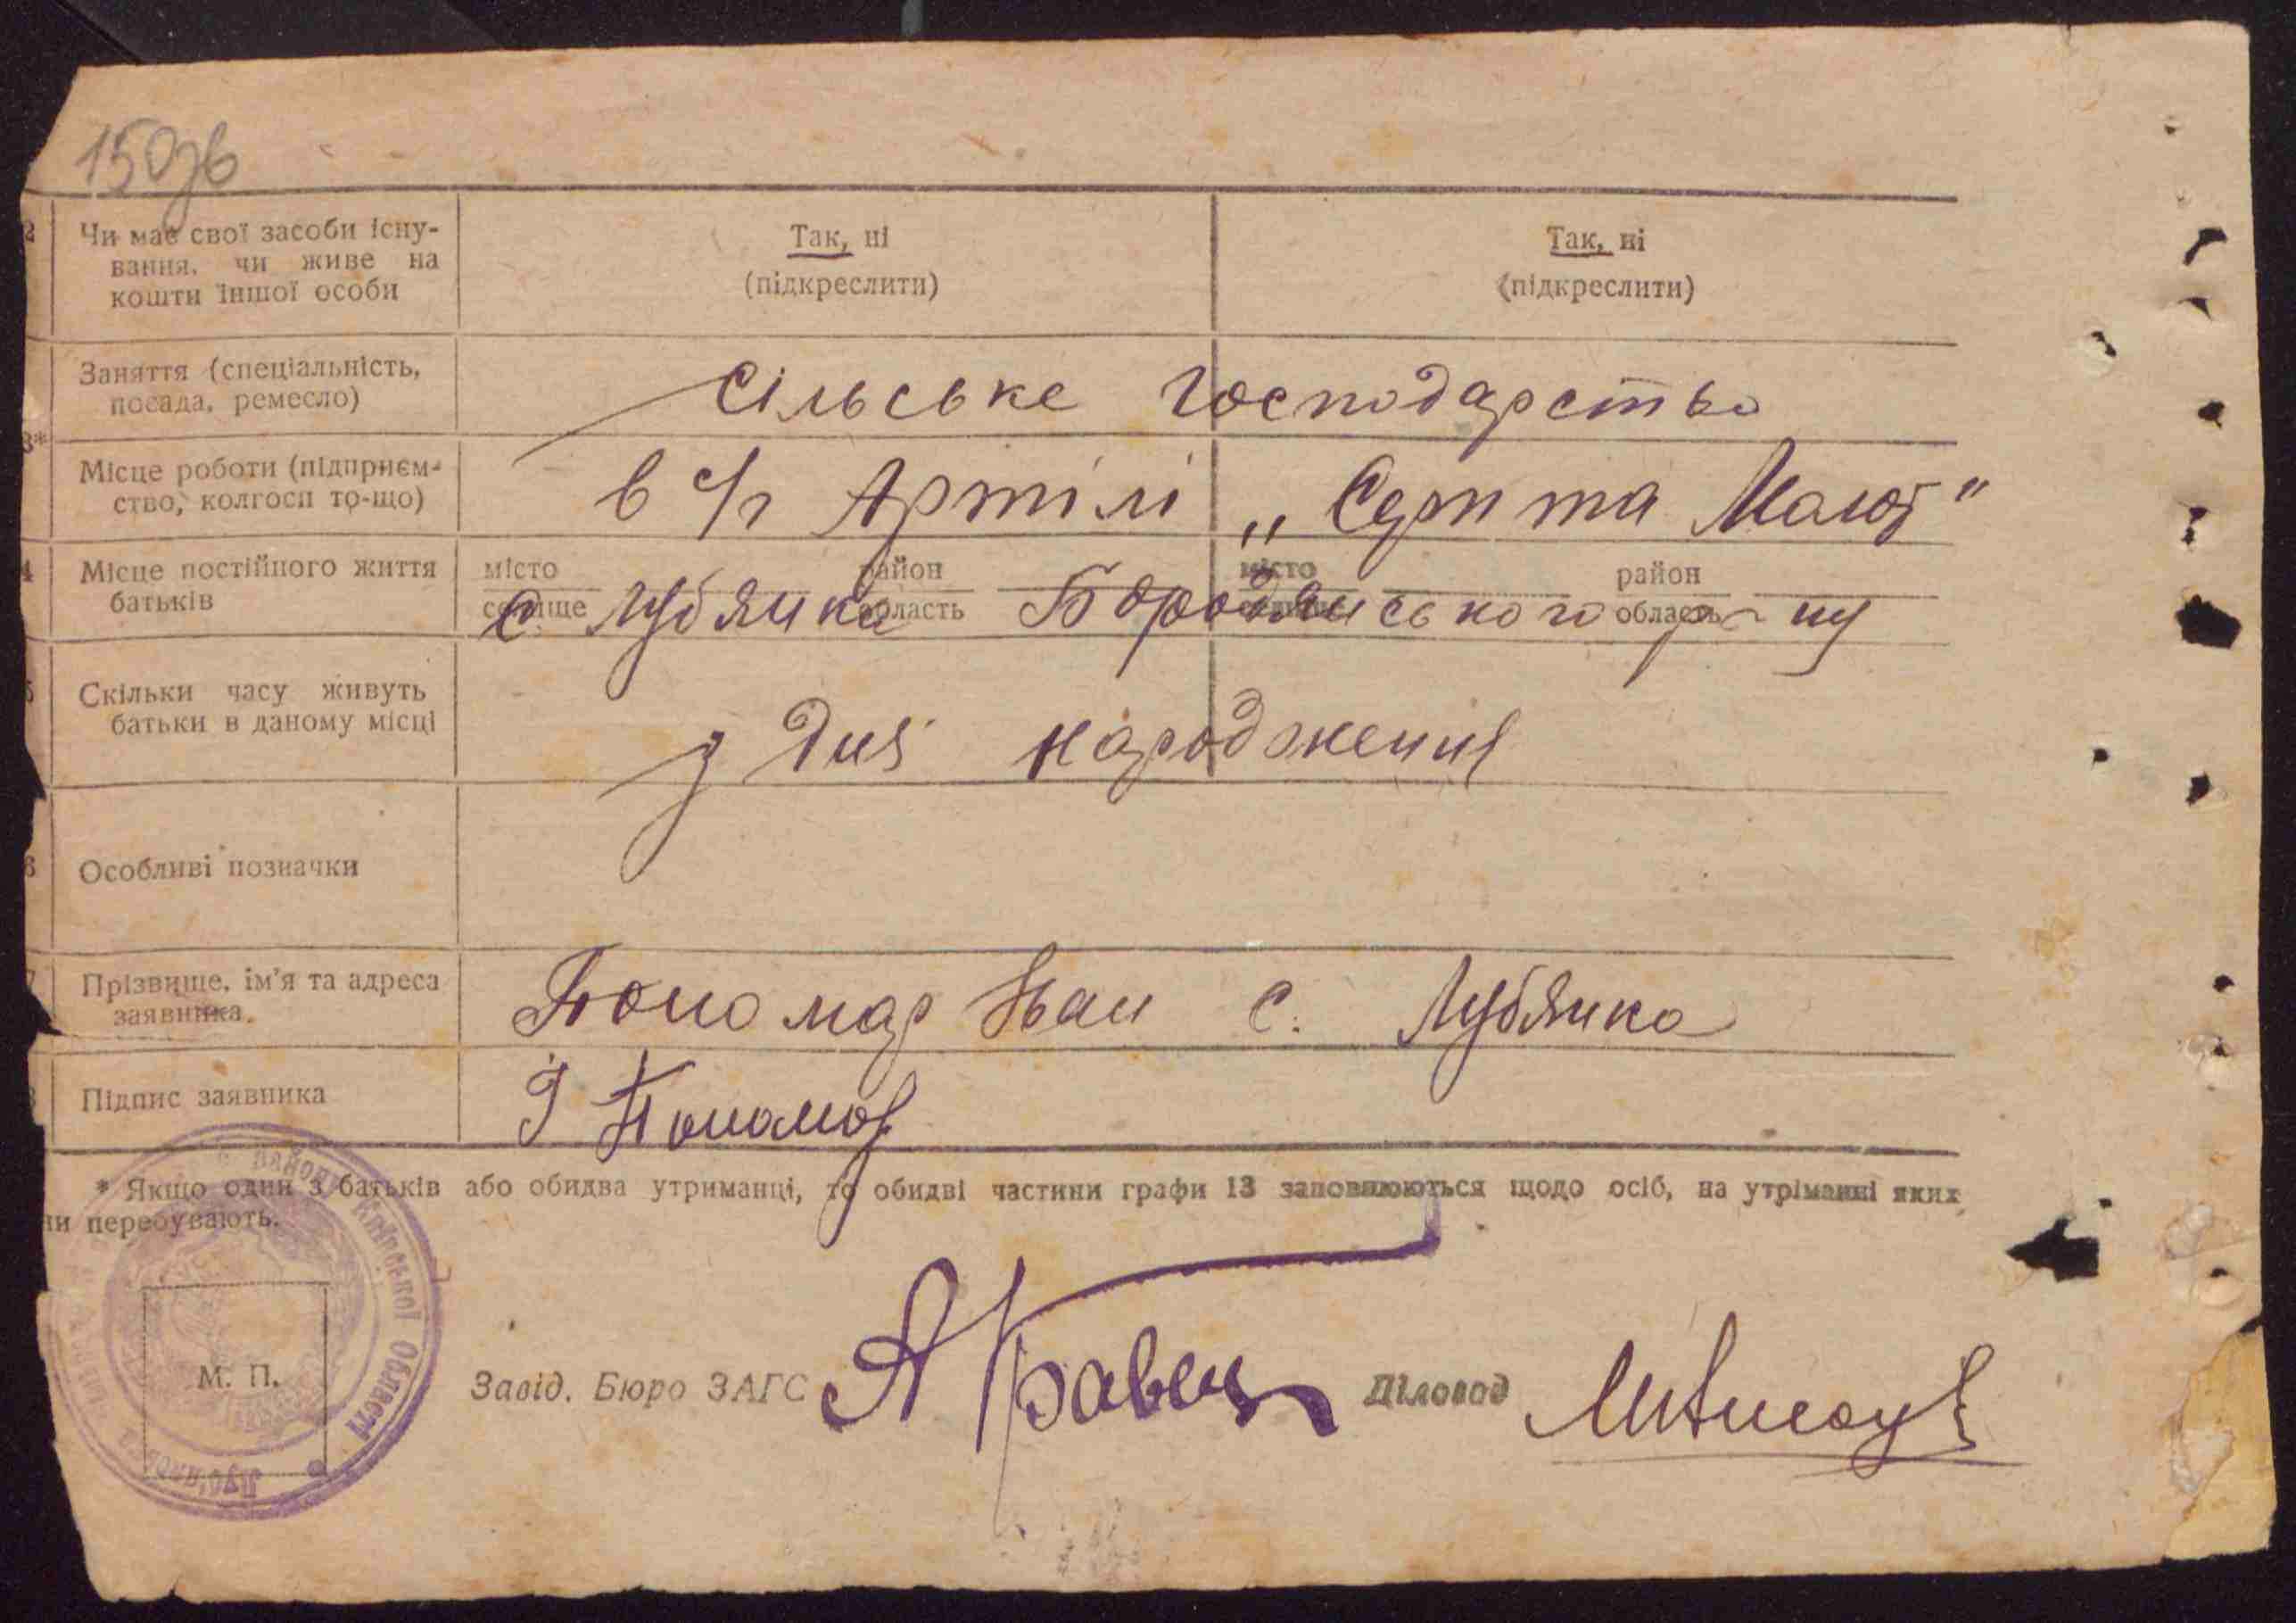 150зв
2 Чи має свої засоби існу- Так, ні Так, ні
вання, чи живе на (підкреслити) (підкреслити)
кошти іншої особи
Заняття (спеціальність, Сільське господарство
посада, ремесло)
3*
Місце роботи (підприєм- в с/г Артілі „Серп та Молот"
ство, колгосп то-що)
4 Місце постійного життя місто район місто район
батьків селище область область
с. Лубянка Бородянського р-ну
5 Скільки часу живуть з дня народження
батьки в даному місці
6 Особливі позначки
7 Прізвище, ім'я та адреса Пономар Іван с. Лубянка
заявника.
Підпис заявника І Пономар
* Якщо один з батьків або обидва утриманці, то обидві частини графи 13 заповнюються щодо осіб, на утріманні яких
ни перебувають.
району Київської Області
М. П. Завід. Бюро ЗАГС А Кравец Діловод